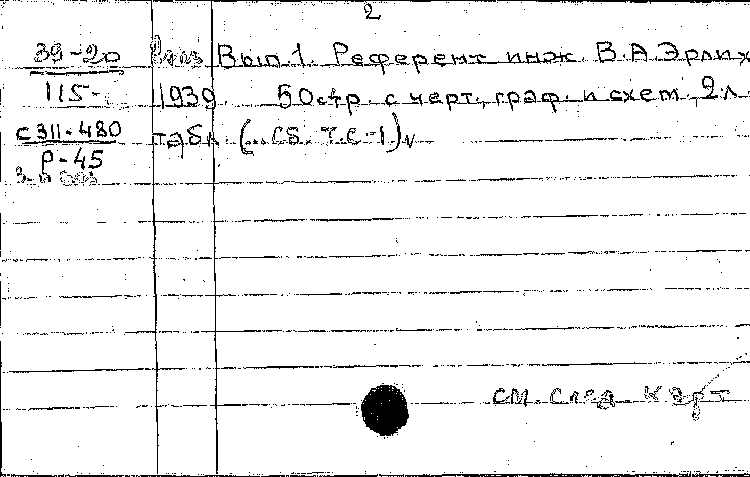 2
39-20 Вып. 1. Референт инж. В.А. Эрлих
115- 1939. 50 стр. с черт., граф. и схем., 2 л.
С311-480 табл. (... Сб. т.с.-1)
Р-45
См. след. карт